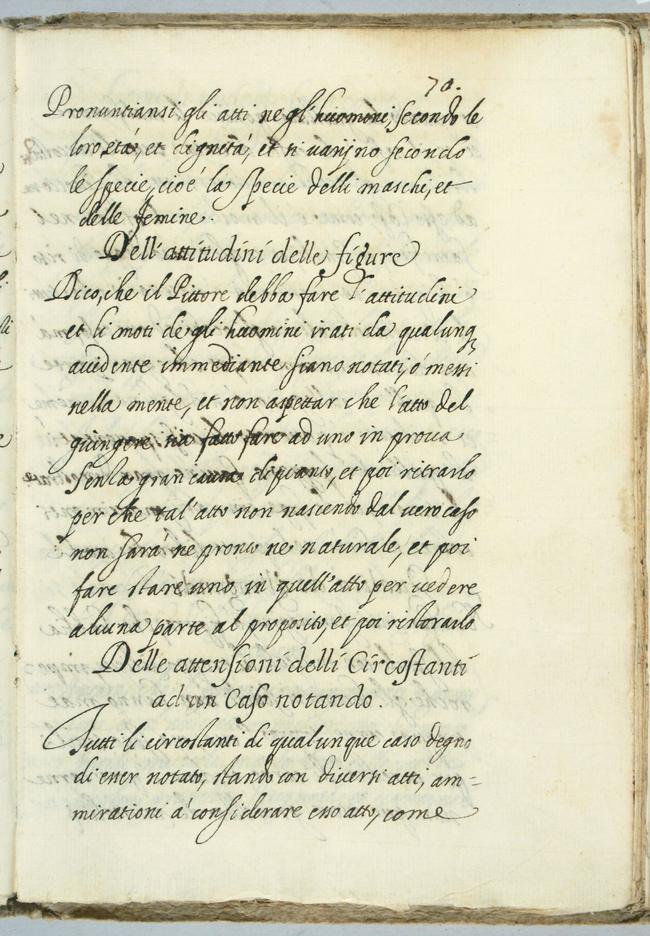 70.
Pronuntiansi gli atti negl'huomini, secondo le
loro età, et dignità, et si varijno secondo
le specie, cioè la specie delli maschi, et
delle femine.
Dell'attitudini delle figure
Dico, che il Pittore debba fare l'attitudini
et li moti degli huomini irati da qualunq
accidente immediante siano notati, ó messi
nella mente, et non aspettar che l'atto del
fare ad uno in prova
senza gran di pianto, et poi ritrarlo
per che tal'atto non nascendo dal vero caso
non sarà ne pronto ne naturale, et poi
fare stare uno in quell'atto per vedere
alcuna parte al proposito, et poi ristorarlo
Delle attensioni delli Circostanti
ad un Caso notando.
Tutti li circostanti di qualunque caso degno
di esser notato, stando con diversi atti, am=
mirationi a' considerare esso atto, come